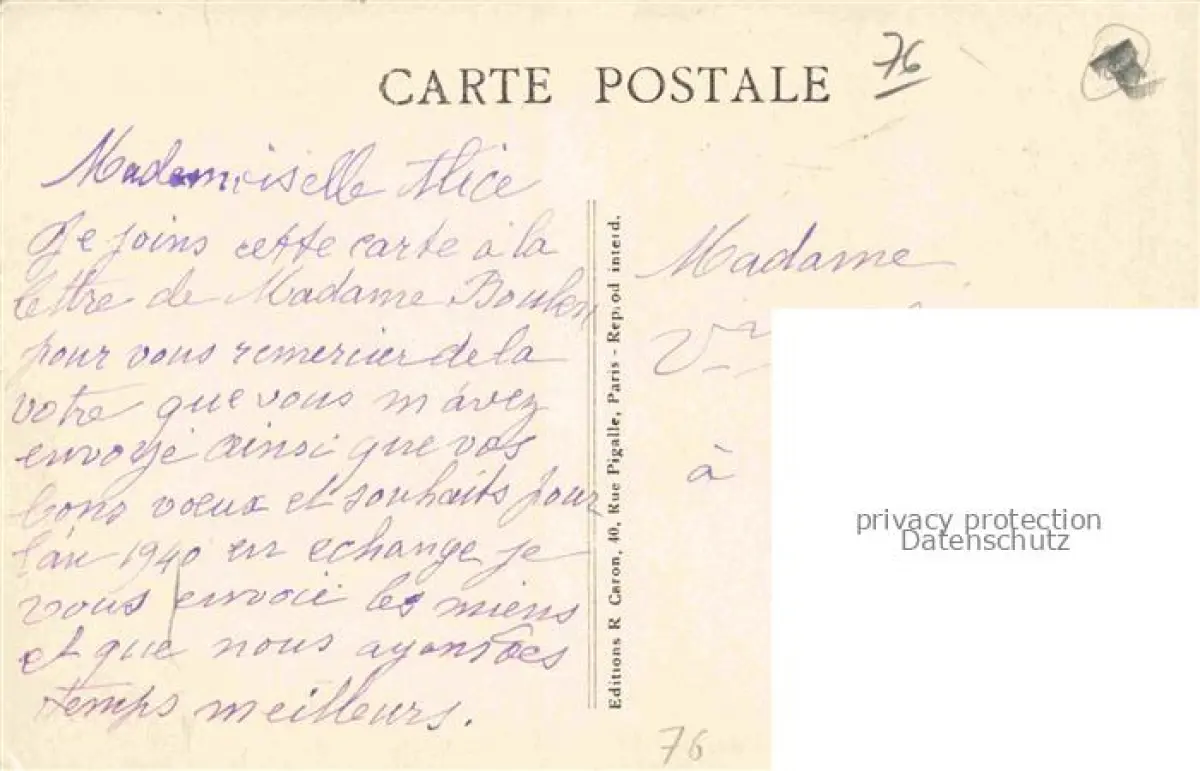 CARTE POSTALE
76
Mademoiselle Alice
Je joins cette carte a la
lettre de Madame Boulon
pour vous remercier de la
votre que vous m'avez
envoyé ainsi que vos
bons voeux et souhaits pour
l'an 1940 en echange je
vous envoie les miens
et que nous ayons des
temps meilleurs.
Editions R Caron, 40, Rue Pigalle, Paris - Reprod interd.
Madame
à
privacy protection
Datenschutz
76